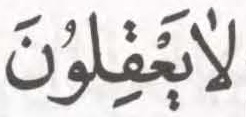 لَا يَعْقِلُونَ